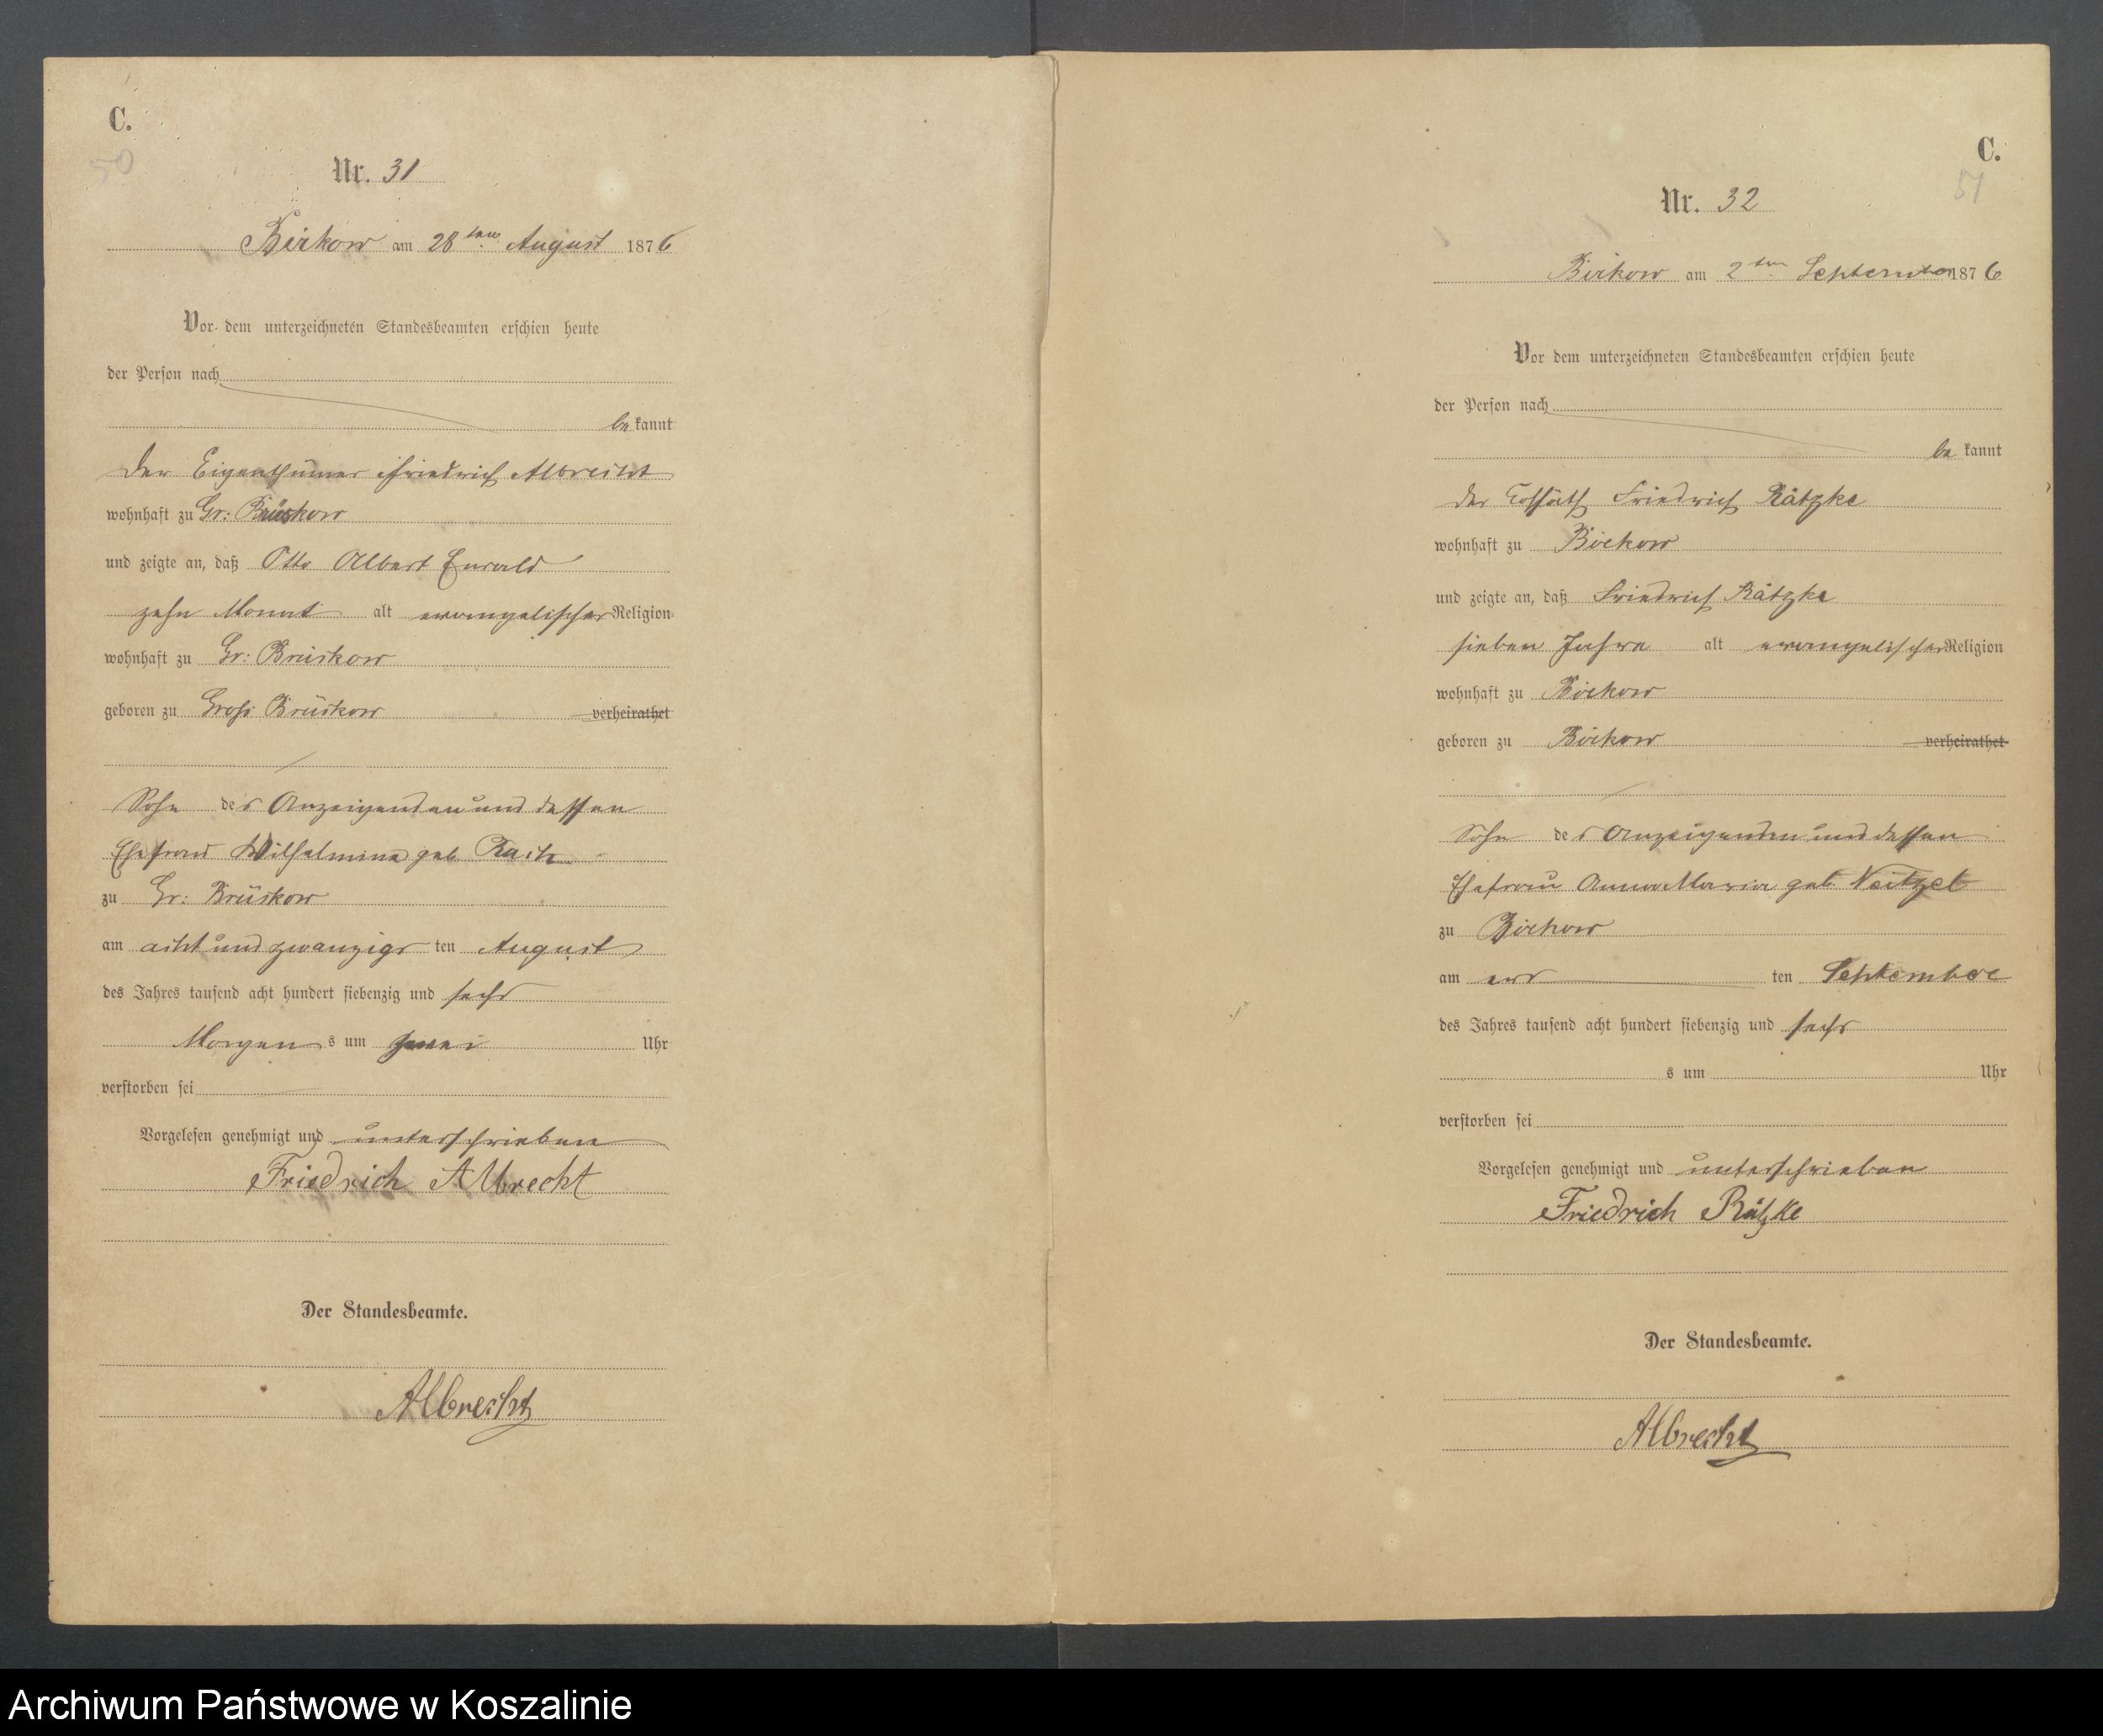 C.
50
Nr. 31
Birkow am 28ten August 1876
Vor dem unterzeichneten Standesbeamten erschien heute
der Person nach
be kannt
der Eigenthümer Friedrich Albrecht
wohnhaft zu Gr: Brüskow
und zeigte an, daß Otto Albert Ewald
zehn Monat alt evangelischer Religion
wohnhaft zu Gr: Brüskow
geboren zu Groß Brüskow verheirathet
Sohn des Anzeigenden und dessen
Ehefrau Wilhelmine geb
zu Gr: Brüskow
am acht und zwanzigs ten August
des Jahres tausend acht hundert siebenzig und sechs
Morgen s um zwei Uhr
verstorben sei
Vorgelesen genehmigt und unterschrieben
Friedrich Albrecht
Der Standesbeamte.
Albrecht
C.
51
Nr. 32
Birkow am 2ten September 1876
Vor dem unterzeichneten Standesbeamten erschien heute
der Person nach
be kannt
der Kossäth Friedrich Rätzke
wohnhaft zu Birkow
und zeigte an, daß Friedrich Rätzke
sieben Jahre alt evangelischer Religion
wohnhaft zu Birkow
geboren zu Birkow verheirathet
Sohn des Anzeigenden und dessen
Ehefrau Anna Maria geb. Neitzel
zu Birkow
am ten September
des Jahres tausend acht hundert siebenzig und sechs
s um Uhr
verstorben sei
Vorgelesen genehmigt und unterschrieben
Friedrich Rätzke
Der Standesbeamte.
Albrecht
Archiwum Państwowe w Koszalinie